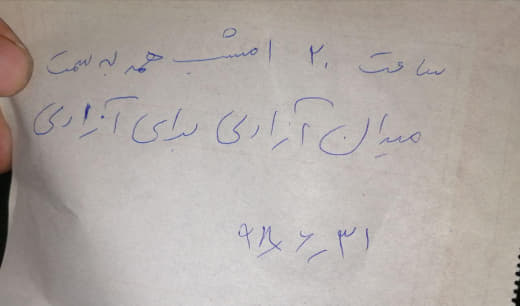 ساعت ۲۰ امشب همه به سمت
میدان آزادی برای آزادی
۹۸٫۶٫۳۱